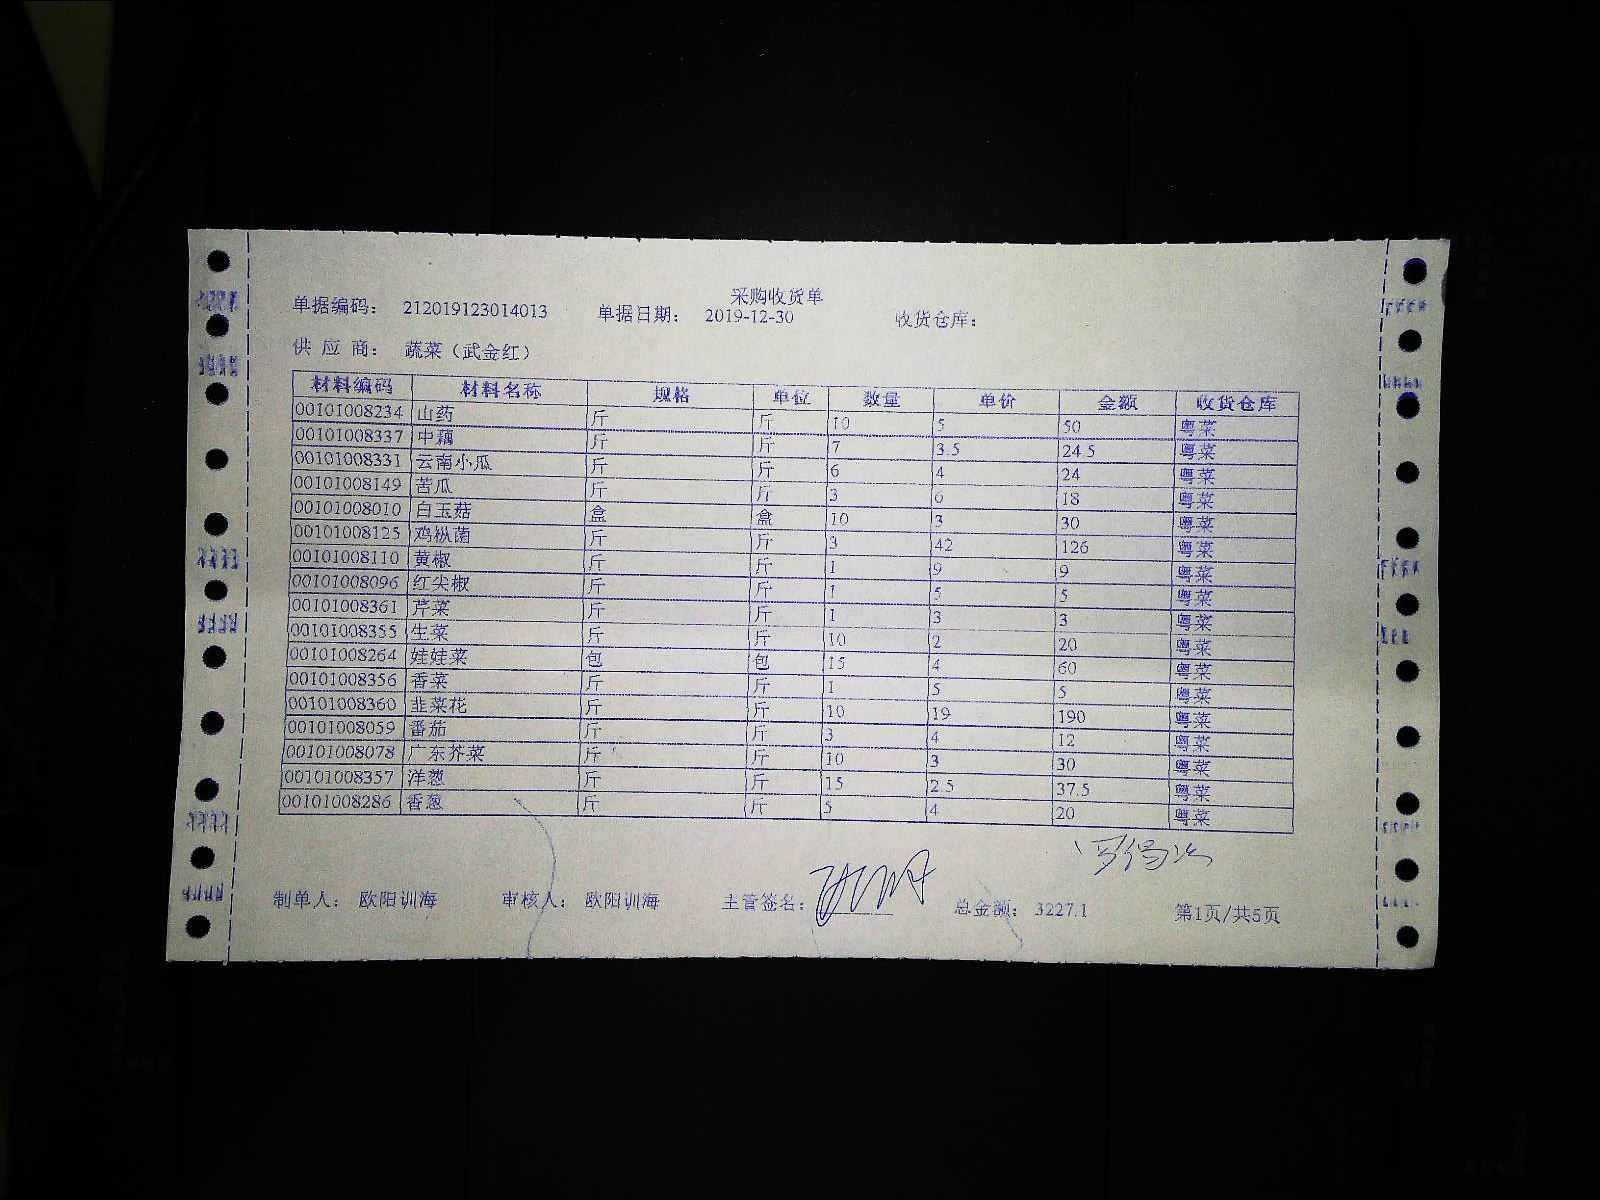 采购收货单
单据编码： 212019123014013 单据日期： 2019-12-30 收货仓库：
供 应 商： 蔬菜（武金红）
材料编码 材料名称 规格 单位 数量 单价 金额 收货仓库
00101008234 山药 斤 斤 10 5 50 粤菜
00101008337 中藕 斤 斤 7 3.5 24.5 粤菜
00101008331 云南小瓜 斤 斤 6 4 24 粤菜
00101008149 苦瓜 斤 斤 3 6 18 粤菜
00101008010 白玉菇 盒 盒 10 3 30 粤菜
00101008125 鸡枞菌 斤 斤 3 42 126 粤菜
00101008110 黄椒 斤 斤 1 9 9 粤菜
00101008096 红尖椒 斤 斤 1 5 5 粤菜
00101008361 芹菜 斤 斤 1 3 3 粤菜
00101008355 生菜 斤 斤 10 2 20 粤菜
00101008264 娃娃菜 包 包 15 4 60 粤菜
00101008356 香菜 斤 斤 1 5 5 粤菜
00101008360 韭菜花 斤 斤 10 19 190 粤菜
00101008059 番茄 斤 斤 3 4 12 粤菜
00101008078 广东芥菜 斤 斤 10 3 30 粤菜
00101008357 洋葱 斤 斤 15 2.5 37.5 粤菜
00101008286 香葱 斤 斤 5 4 20 粤菜
制单人： 欧阳训海 审核人： 欧阳训海 主管签名： 总金额： 3227.1 第1页/共5页